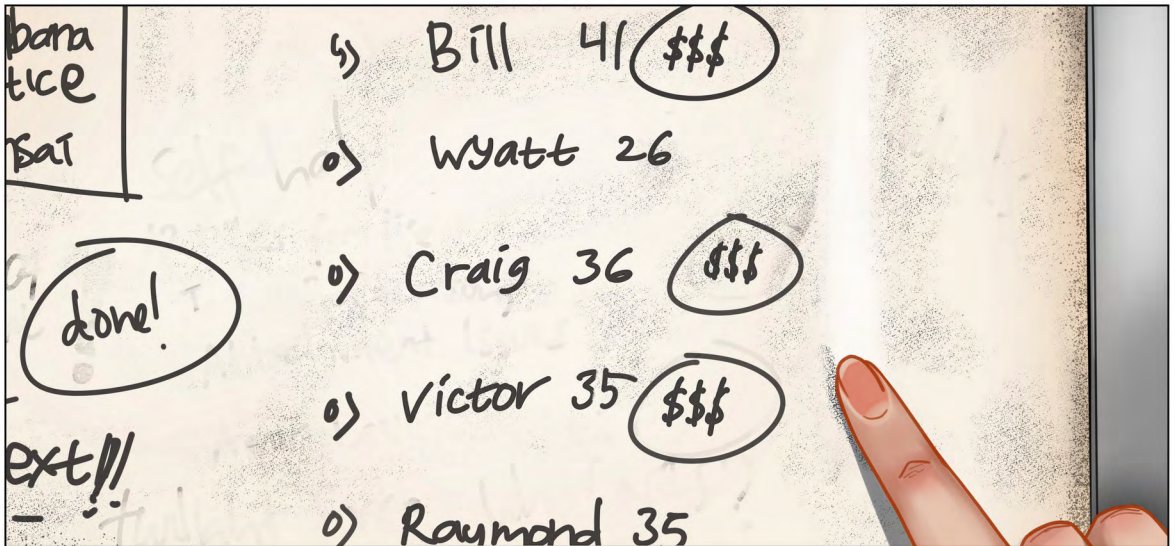 bana
tice
nsai
done!
ext!!!
5) Bill 41 $$$
0) Wyatt 26
0) Craig 36 $$$
0) Victor 35 $$$
0) Raymond 35